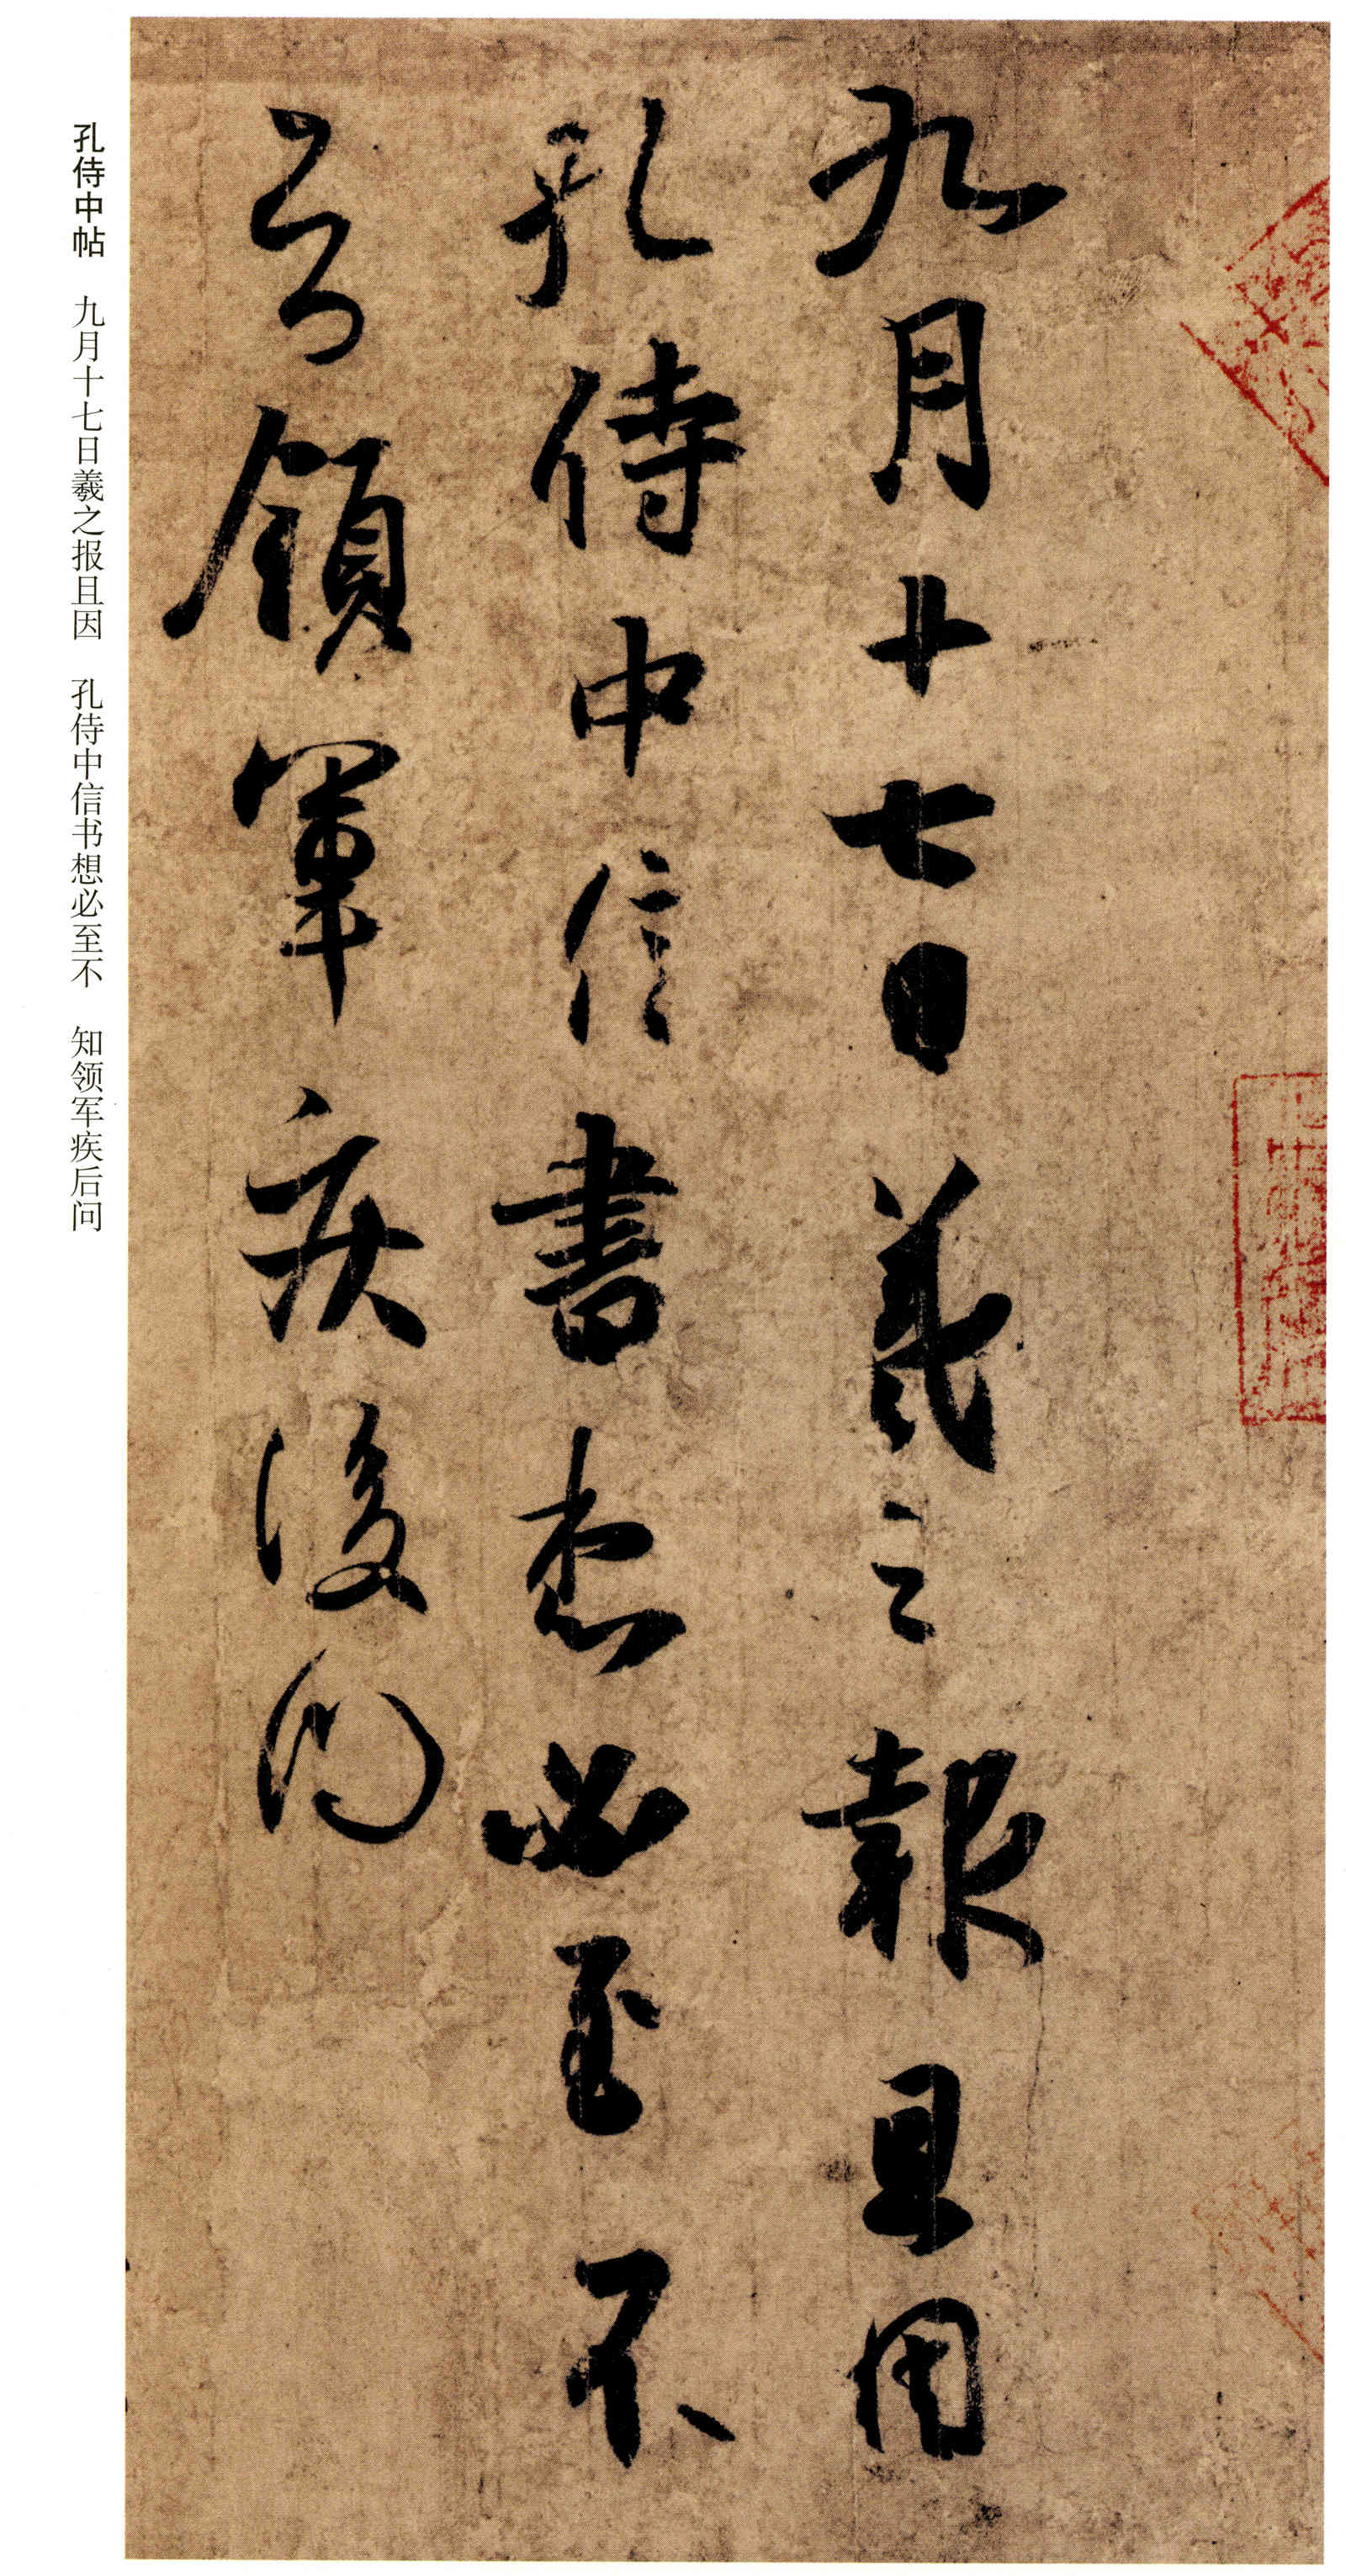 九月十七日羲之報且因
孔侍中信書想必至不
知領軍疾後問
孔侍中帖 九月十七日羲之报且因 孔侍中信书想必至不 知领军疾后问